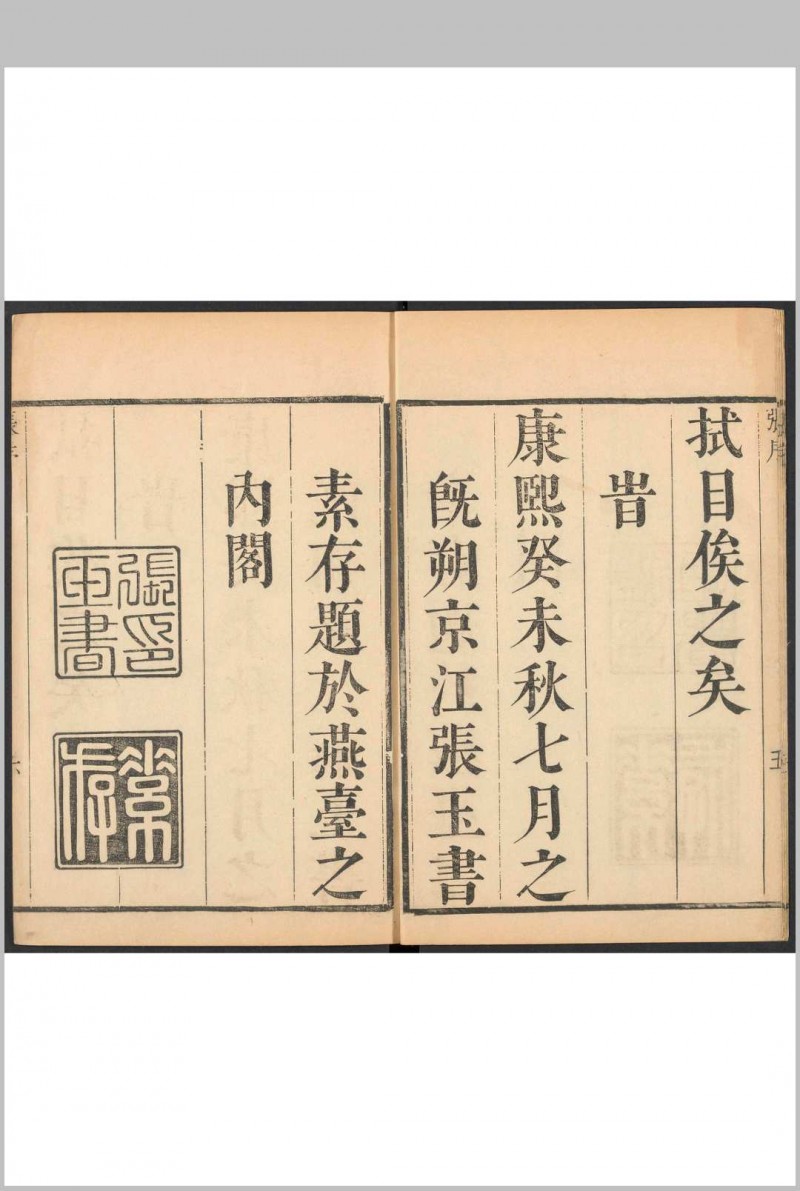 張序
五
拭目俟之矣
旹
康熙癸未秋七月之
旣朔京江張玉書
素存題於燕臺之
內閣
張玉書印
素存
六